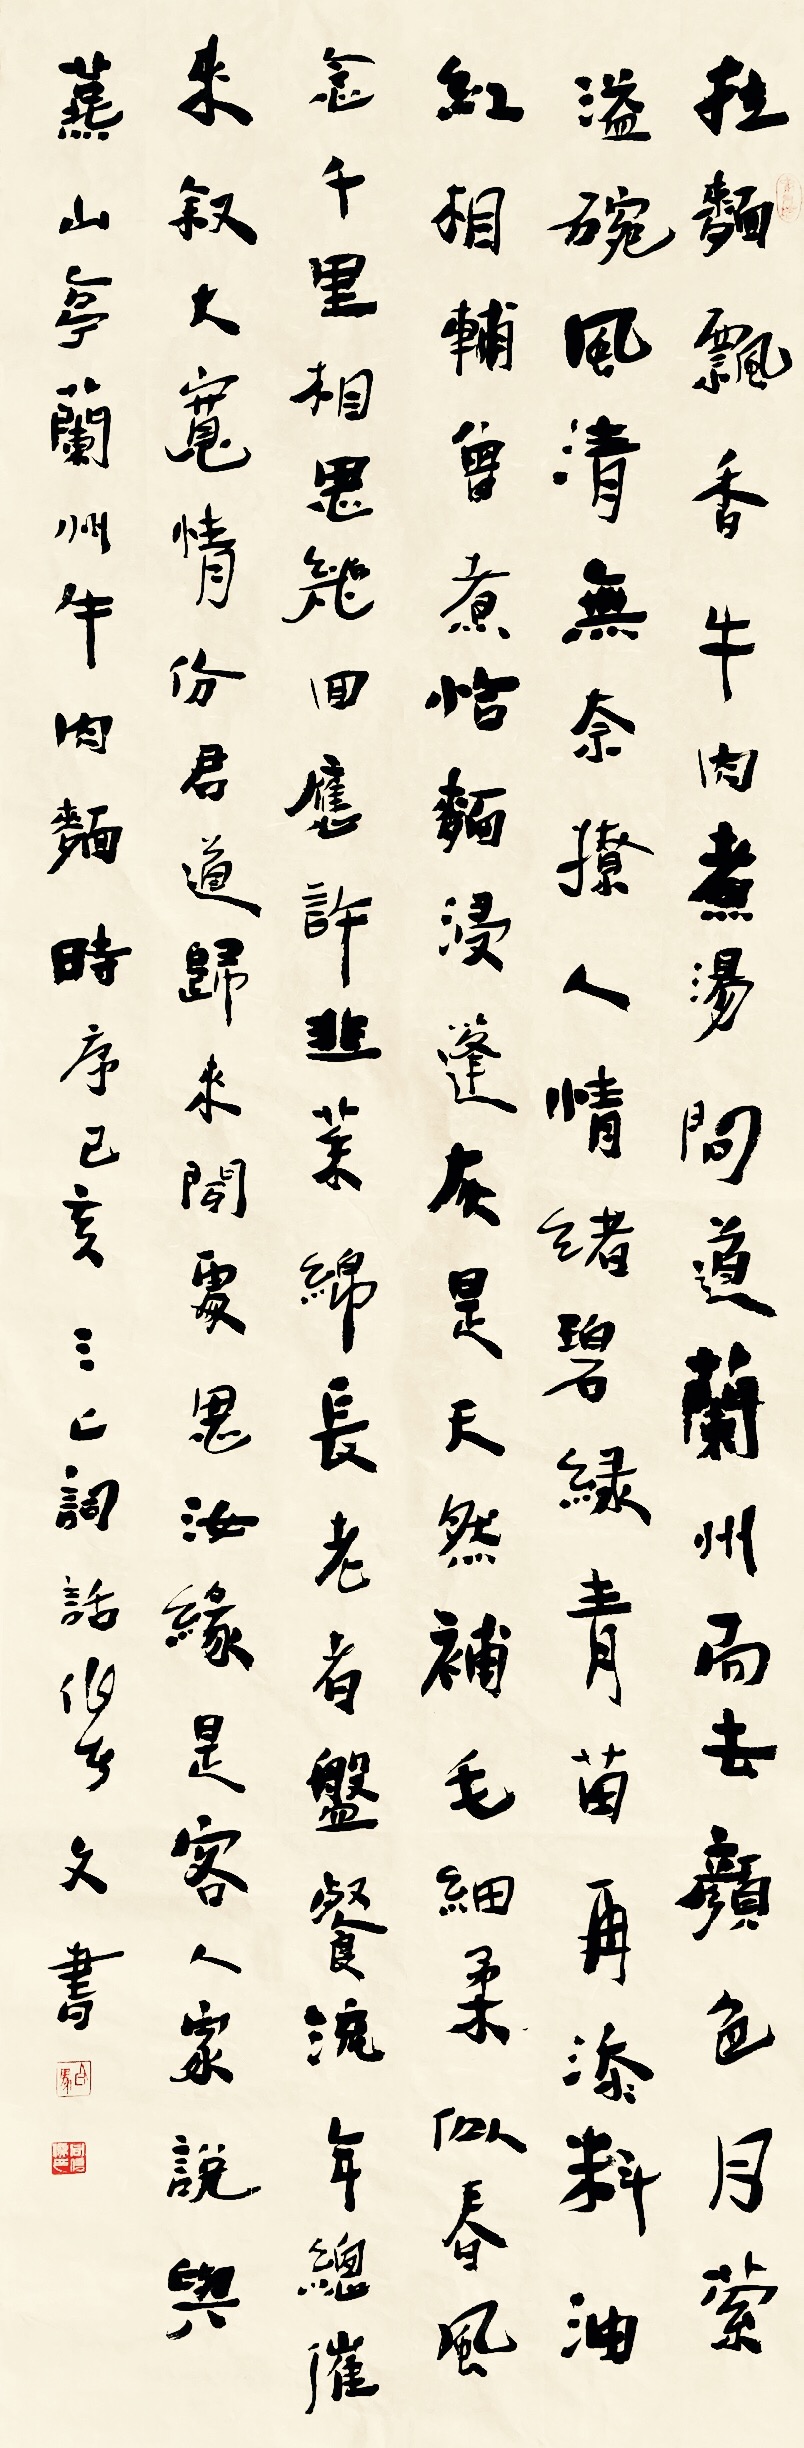 拉麵飄香牛肉煮湯問道蘭州而去顏色月縈
溢碗風清無奈撩人情緒碧綠青苗再添料油
紅相輔曾煮恰麵浸蓬灰是天然補毛細柔似春風
念千里相思幾回應許韭菜綿長老者盤餐流年總催
來敘大寬情份君道歸來閒處思汝緣是客人家說與
燕山亭蘭州牛肉麵時序己亥三亡詞話文書